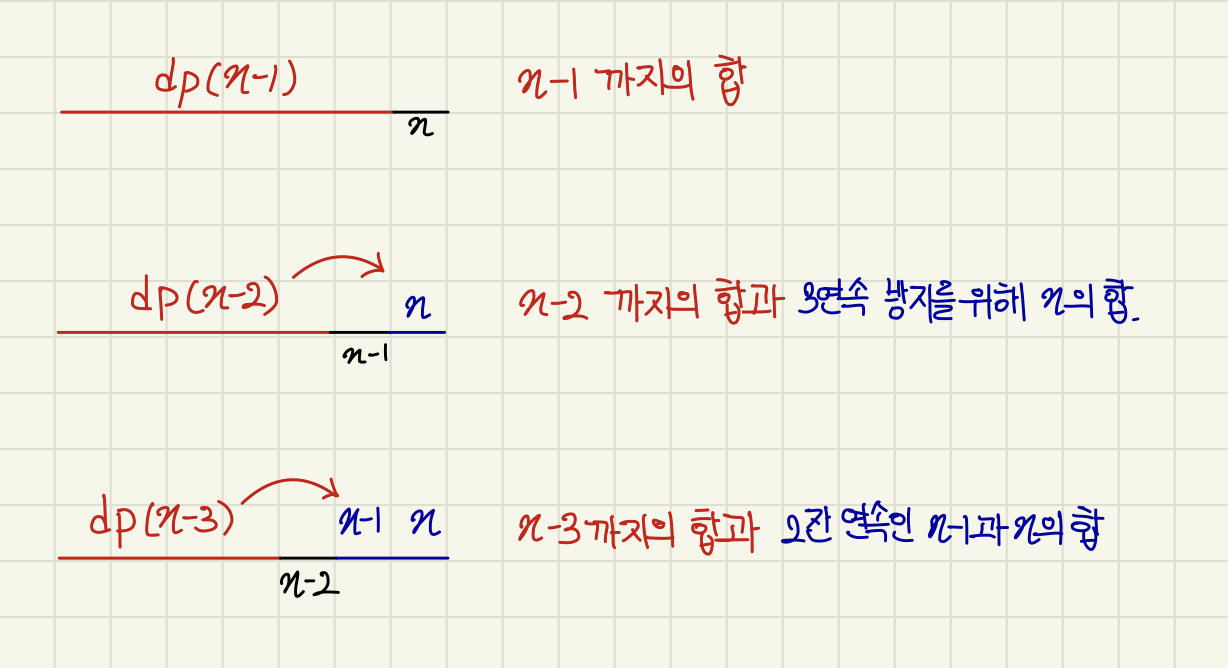 dp(n-1)
n-1 까지의 합
n
dp(n-2)
n
n-2 까지의 합과 3연속 방지를 위해 n의 합.
n-1
dp(n-3)
n-1 n
n-3까지의 합과 2칸 연속인 n-1과 n의 합
n-2